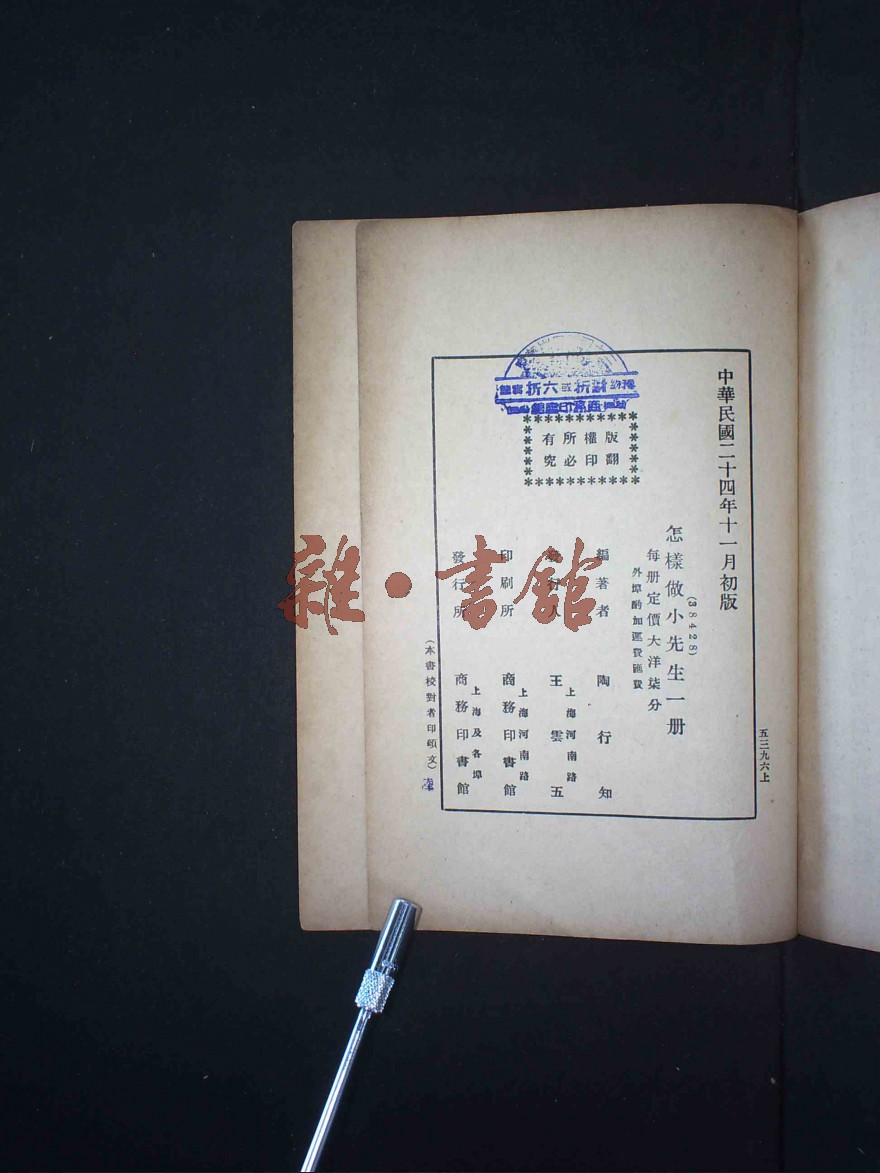 中華民國二十四年十一月初版
五三九六上
(38428)
怎樣做小先生一册
每册定價大洋柒分
外埠酌加運費匯費
版權所有
翻印必究
編著者 陶行知
發行人 王雲五
上海河南路
印刷所 商務印書館
上海河南路
發行所 商務印書館
上海及各埠
(本書校對者印頌文)
折六或折
雜·書館